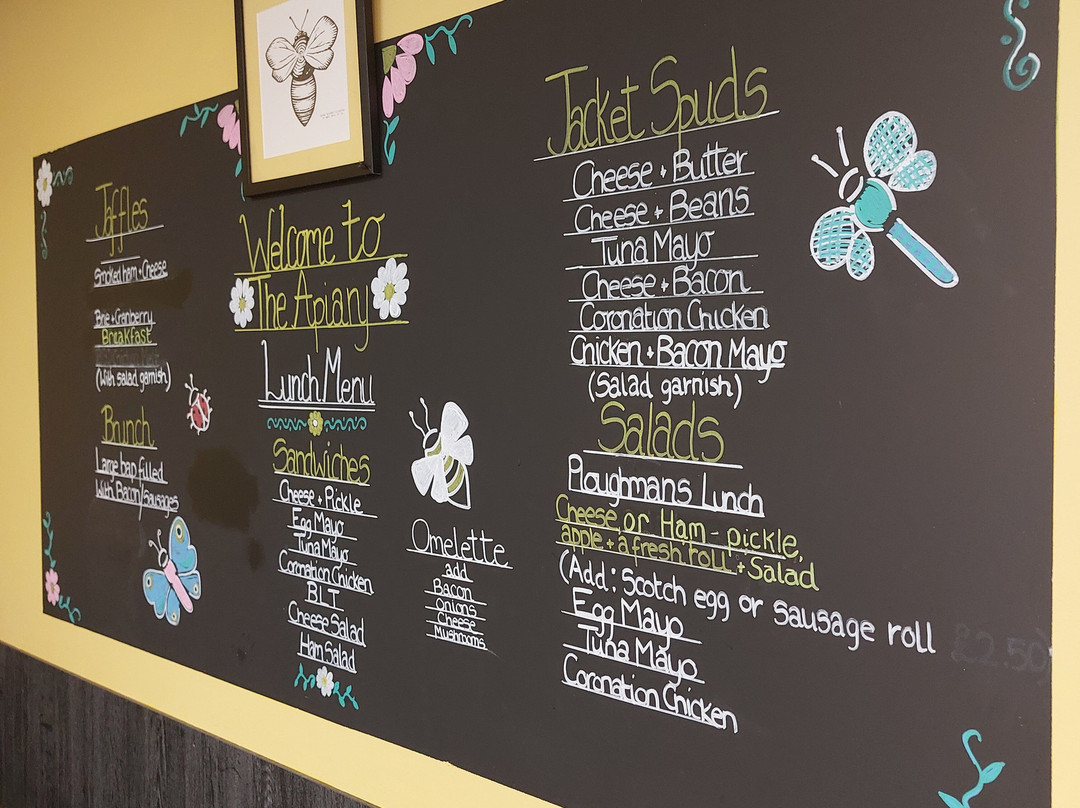 Jaffles
Smoked ham + Cheese
Brie + Cranberry
Breakfast
(With salad garnish)
Brunch
Large bap filled
With Bacon/Sausages
Welcome to
The Apiary
Lunch Menu
Sandwiches
Cheese + Pickle
Egg Mayo
Tuna Mayo
Coronation Chicken
BLT
Cheese Salad
Ham Salad
Omelette
add
Bacon
Onions
Cheese
Mushrooms
Jacket Spuds
Cheese + Butter
Cheese + Beans
Tuna Mayo
Cheese + Bacon
Coronation Chicken
Chicken + Bacon Mayo
(Salad garnish)
Salads
Ploughmans Lunch
Cheese or Ham - pickle,
apple + a fresh roll + Salad
(Add: Scotch egg or sausage roll £2.50)
Egg Mayo
Tuna Mayo
Coronation Chicken